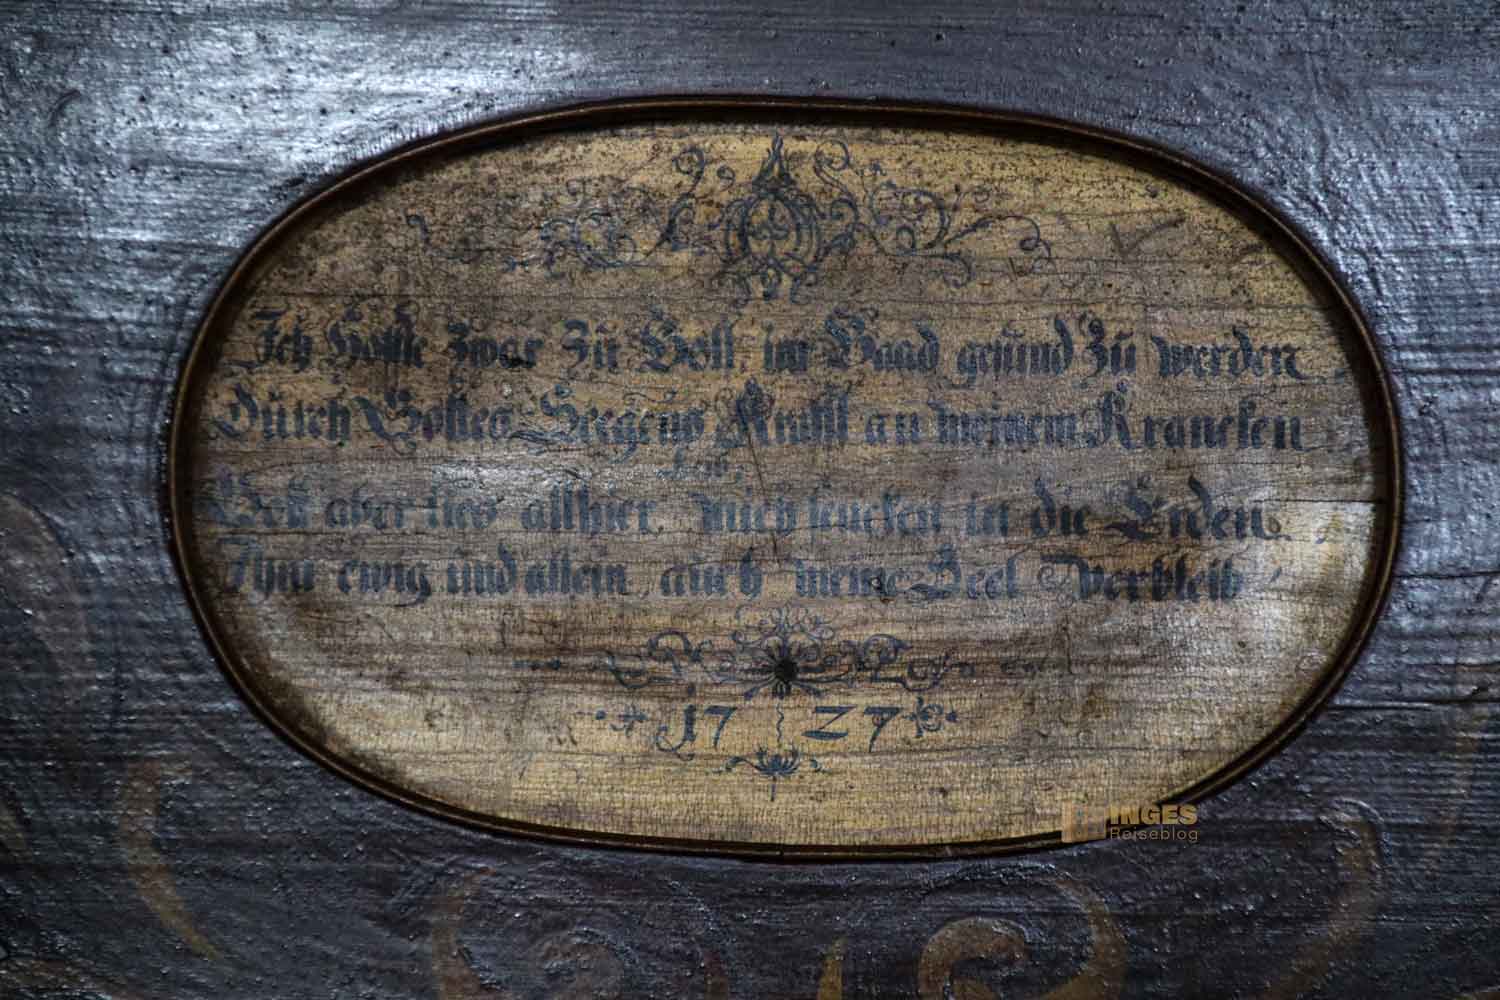 Ich Hoffte zwar Zu Boll, im Baad gesund Zu werden
Durch Gottes Seegens Krafft an meinem Krancken
Leib,
Gott aber lies allhier, mich sencken in die Erden,
Ihm ewig und allein, auch meine Seel verbleib.
1727
INGES
Reiseblog